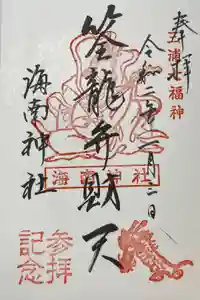 奉拝
三浦七福神
令和二年一月二日
筌龍弁財天
海南神社
海南神社
参拝
記念